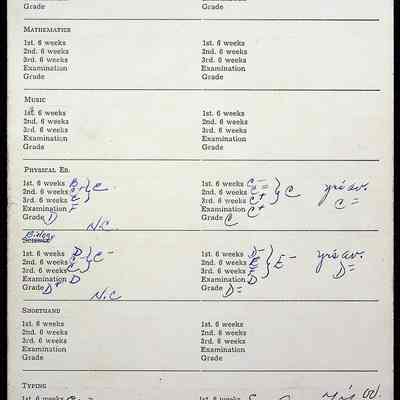 Grade Grade
MATHEMATICS
1st. 6 weeks 1st. 6 weeks
2nd. 6 weeks 2nd. 6 weeks
3rd. 6 weeks 3rd. 6 weeks
Examination Examination
Grade Grade
MUSIC
1st. 6 weeks 1st. 6 weeks
2nd. 6 weeks 2nd. 6 weeks
3rd. 6 weeks 3rd. 6 weeks
Examination Examination
Grade Grade
PHYSICAL ED.
1st. 6 weeks 1st. 6 weeks C- yr's av.
2nd. 6 weeks 2nd. 6 weeks C
3rd. 6 weeks 3rd. 6 weeks C+ C=
Examination F Examination C+
Grade D Grade C
N.C.
Biology
Science
1st. 6 weeks D C- 1st. 6 weeks D- yr's av.
2nd. 6 weeks 2nd. 6 weeks E E-
3rd. 6 weeks 3rd. 6 weeks D=
Examination D Examination D
Grade D Grade D=
N.C
SHORTHAND
1st. 6 weeks 1st. 6 weeks
2nd. 6 weeks 2nd. 6 weeks
3rd. 6 weeks 3rd. 6 weeks
Examination Examination
Grade Grade
TYPING
1st. 6 weeks 1st. 6 weeks